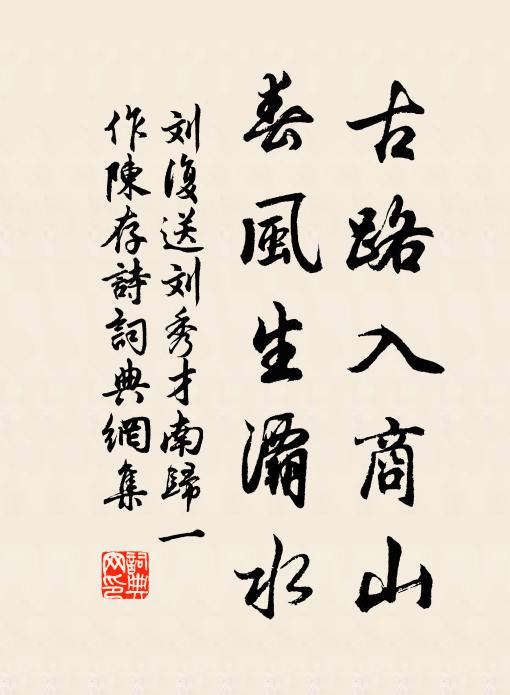 古路入商山
春風生灞水
刘復送刘秀才南歸一
作陳存詩詞典網集
詞典
网印